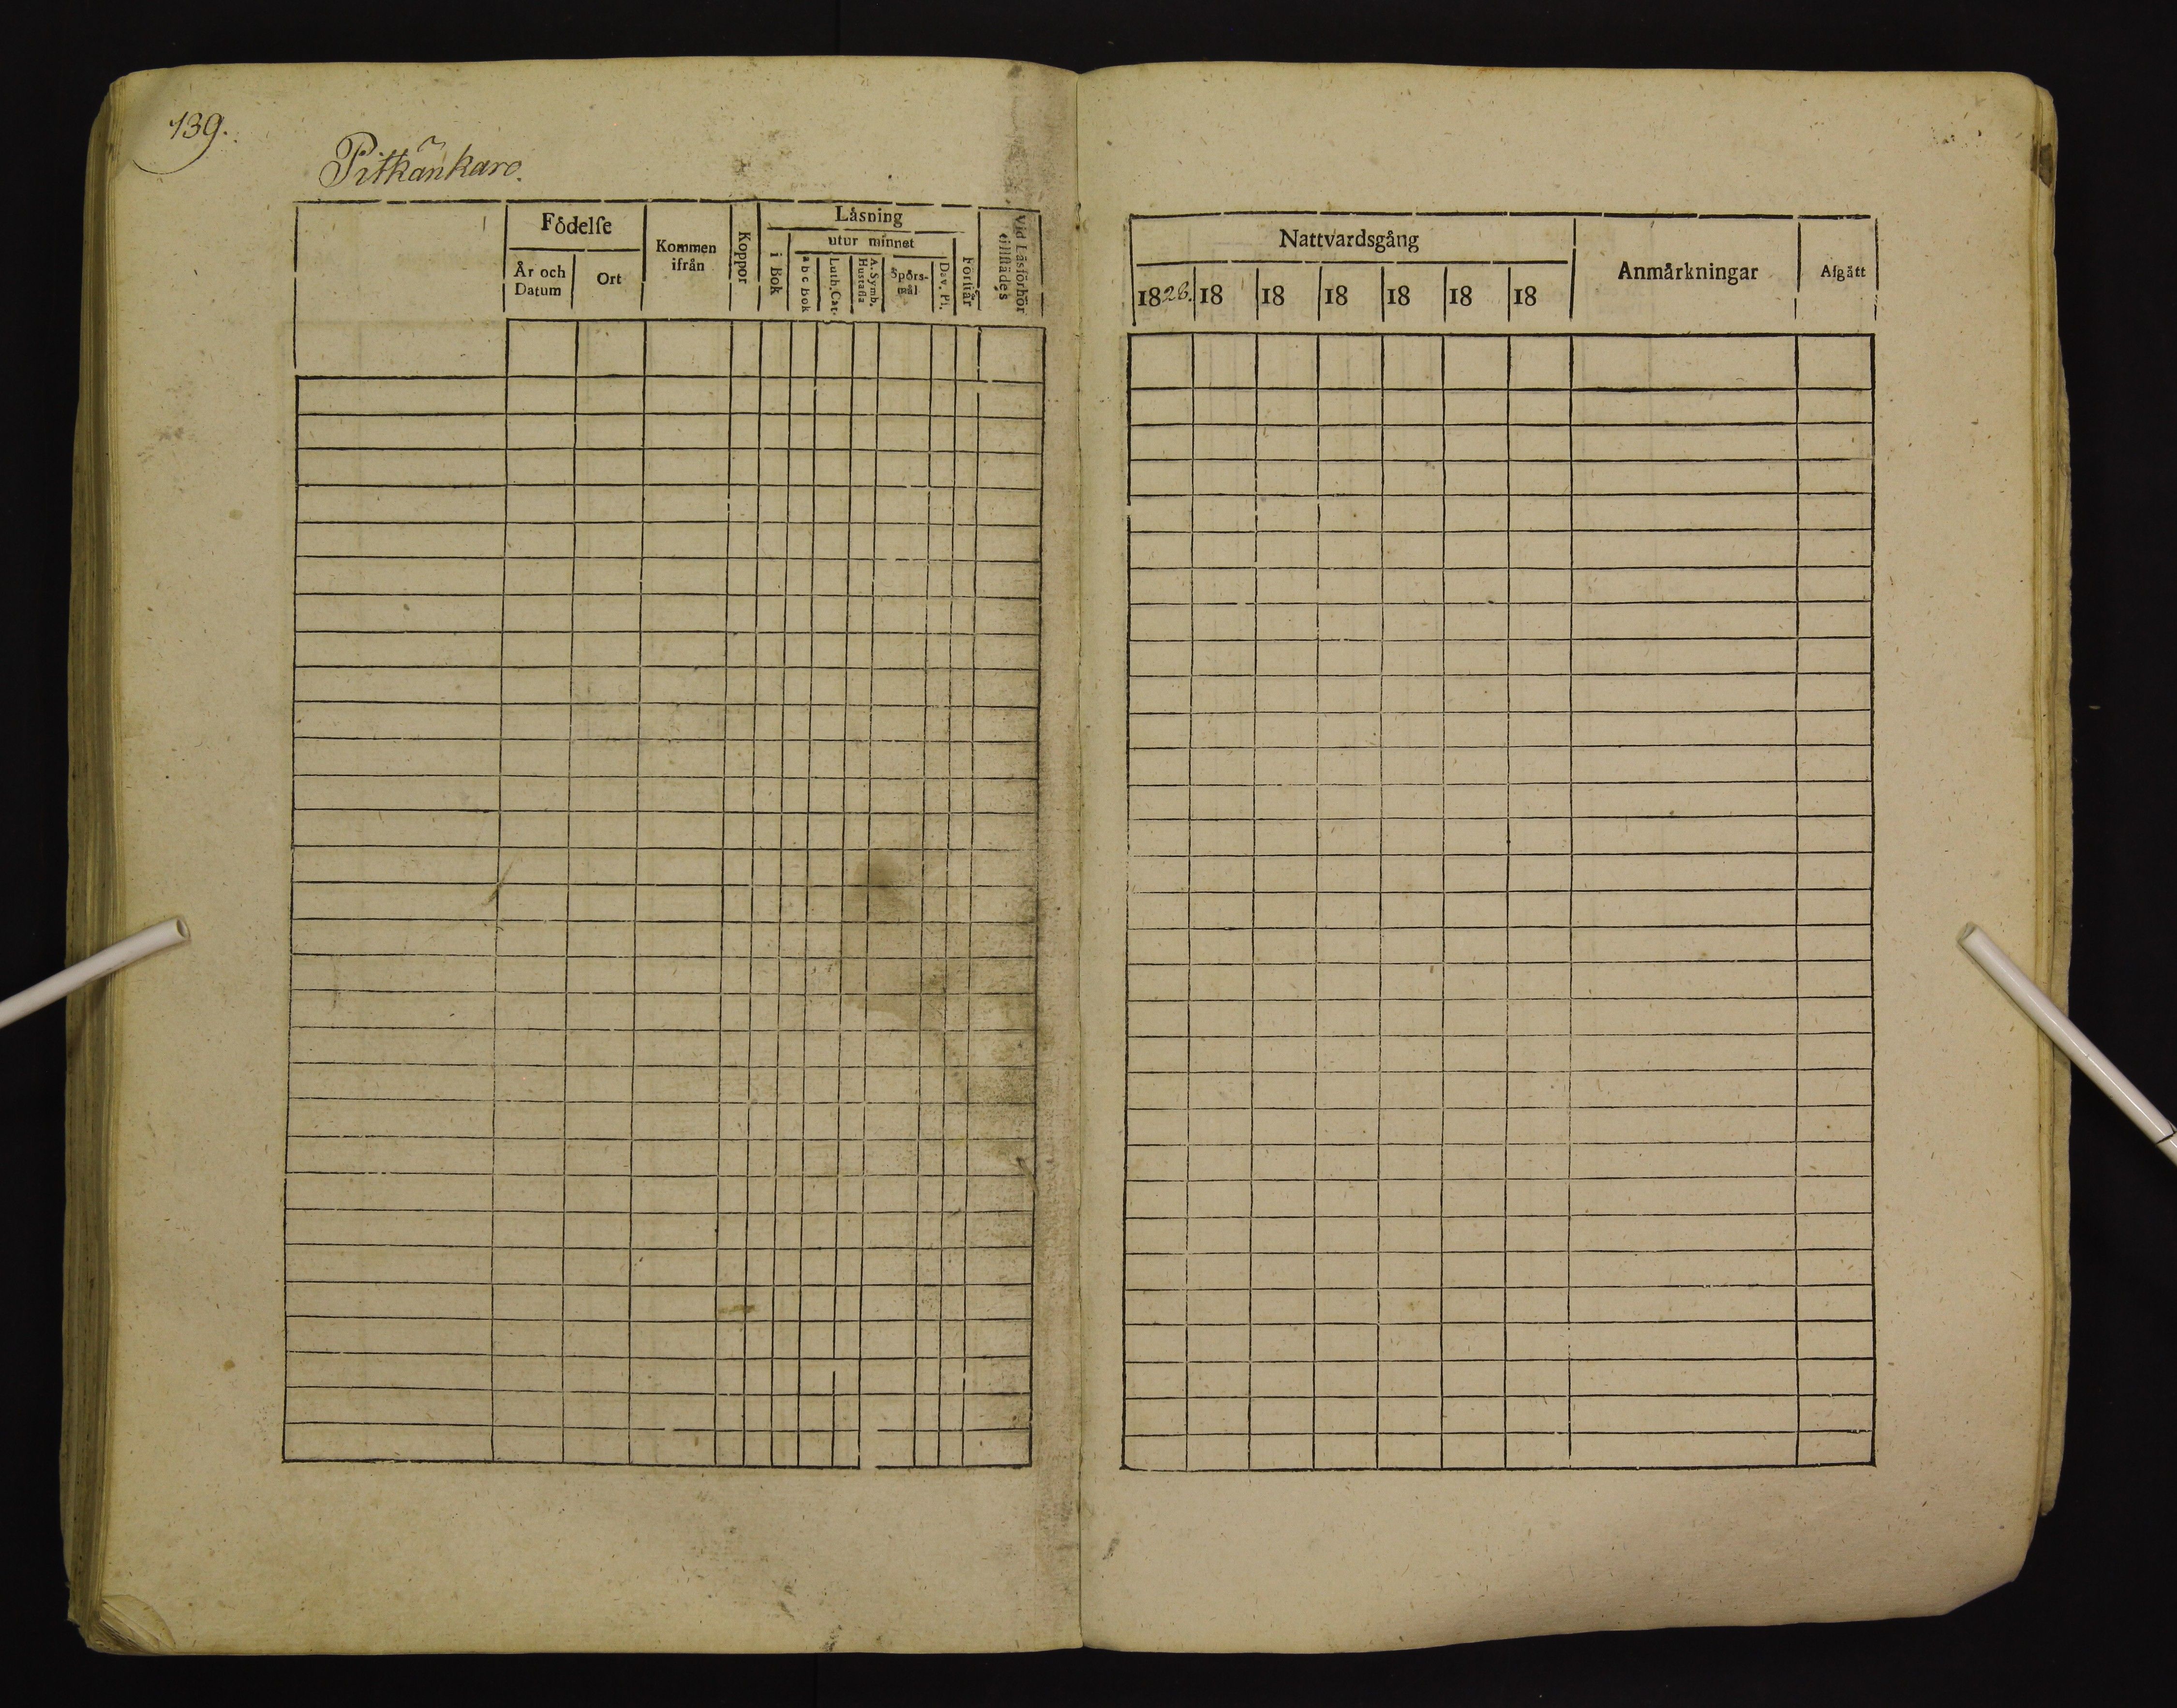 139.
Pitkänkare.
Födelse
År och Datum
Ort
Kommen ifrån
Koppor
Läsning
i Bok
utur minnet
a b c bok
Luth. Cat.
A. Symb. Hustafla
Spörsmål
Dav. Ps.
Förstår
Vid Läsförhör
Nattvardsgång
1828. 18 18 18 18 18 18
Anmärkningar
Afgått